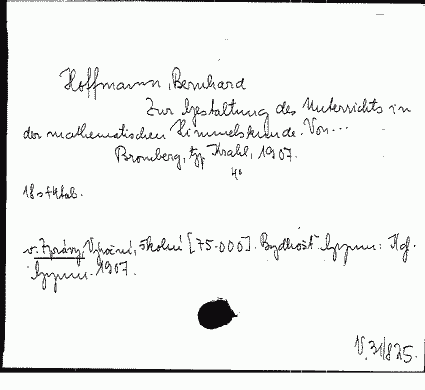 Hoffmann, Bernhard
Zur Gestaltung des Unterrichts in
der mathematischen Himmelskunde. Von...
Bromberg, typ. Krahl, 1907.
4°
18 s + 1 tab.
v. Zprávy, Výroční, školní [75.000]. Bydhošť Gymn: Kgl.
Gymn. 1907.
V.31/825.